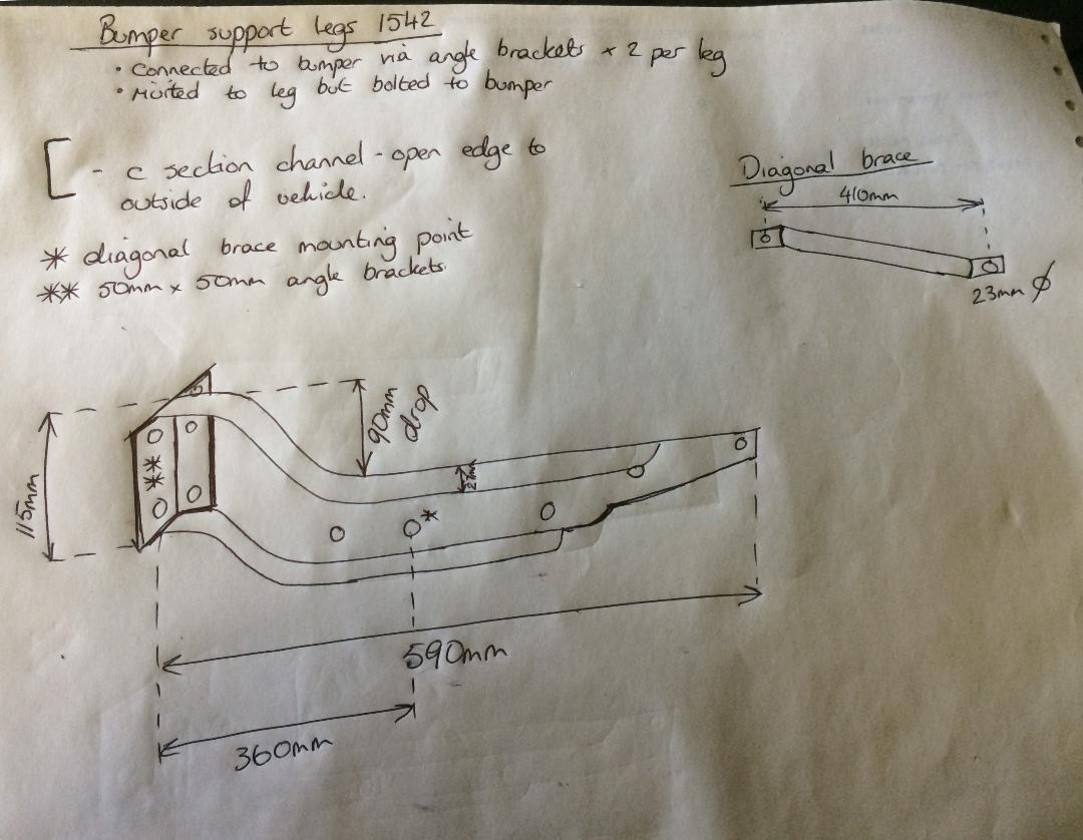 Bumper support legs 1542
• Connected to bumper via angle brackets x 2 per leg
• riveted to leg but bolted to bumper
[ - c section channel - open edge to
outside of vehicle.
* diagonal brace mounting point
** 50mm x 50mm angle brackets.
Diagonal brace
410mm
23mm ϕ
90mm
drop
115mm
**
*
590mm
360mm